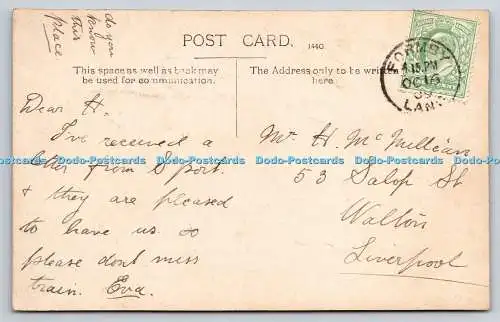 do you
know
this
place
POST CARD.
1440
This space as well as back may
be used for communication.
The Address only to be written
here.
FORMBY
4.15 PM
OC 16
09
LANCS
Dear H.
I've received a
letter from S'port.
& they are pleased
to have us so
please dont miss
train. Eva.
Mr H. Mc Mullean
53 Salop St
Walton
Liverpool
Dodo-Postcards Dodo-Postcards Dodo-Postcards Dodo-Postcards Dodo-Postcards Dodo-Postcards